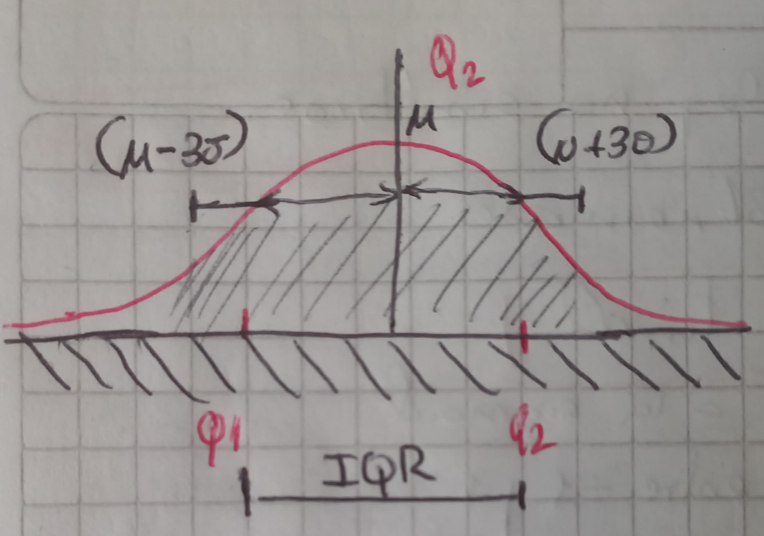 Q2
μ
(μ-3σ)
(μ+3σ)
Q1
q2
IQR